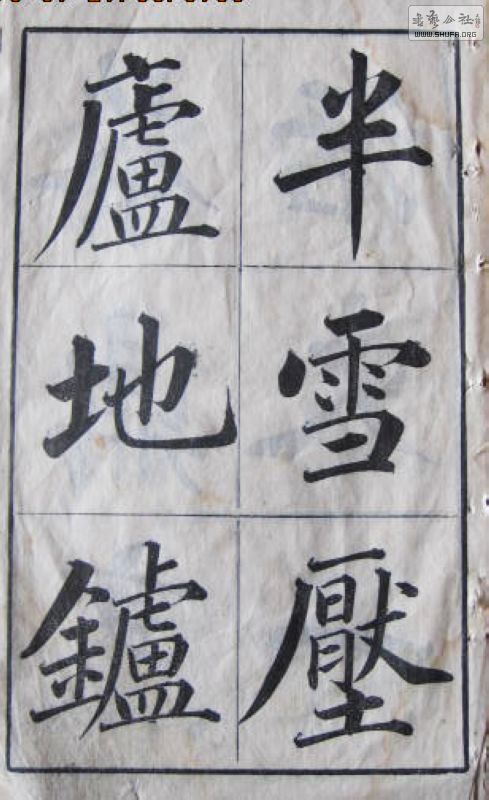 半雪壓
廬地鑪
书艺公社
WWW.SHUFA.ORG